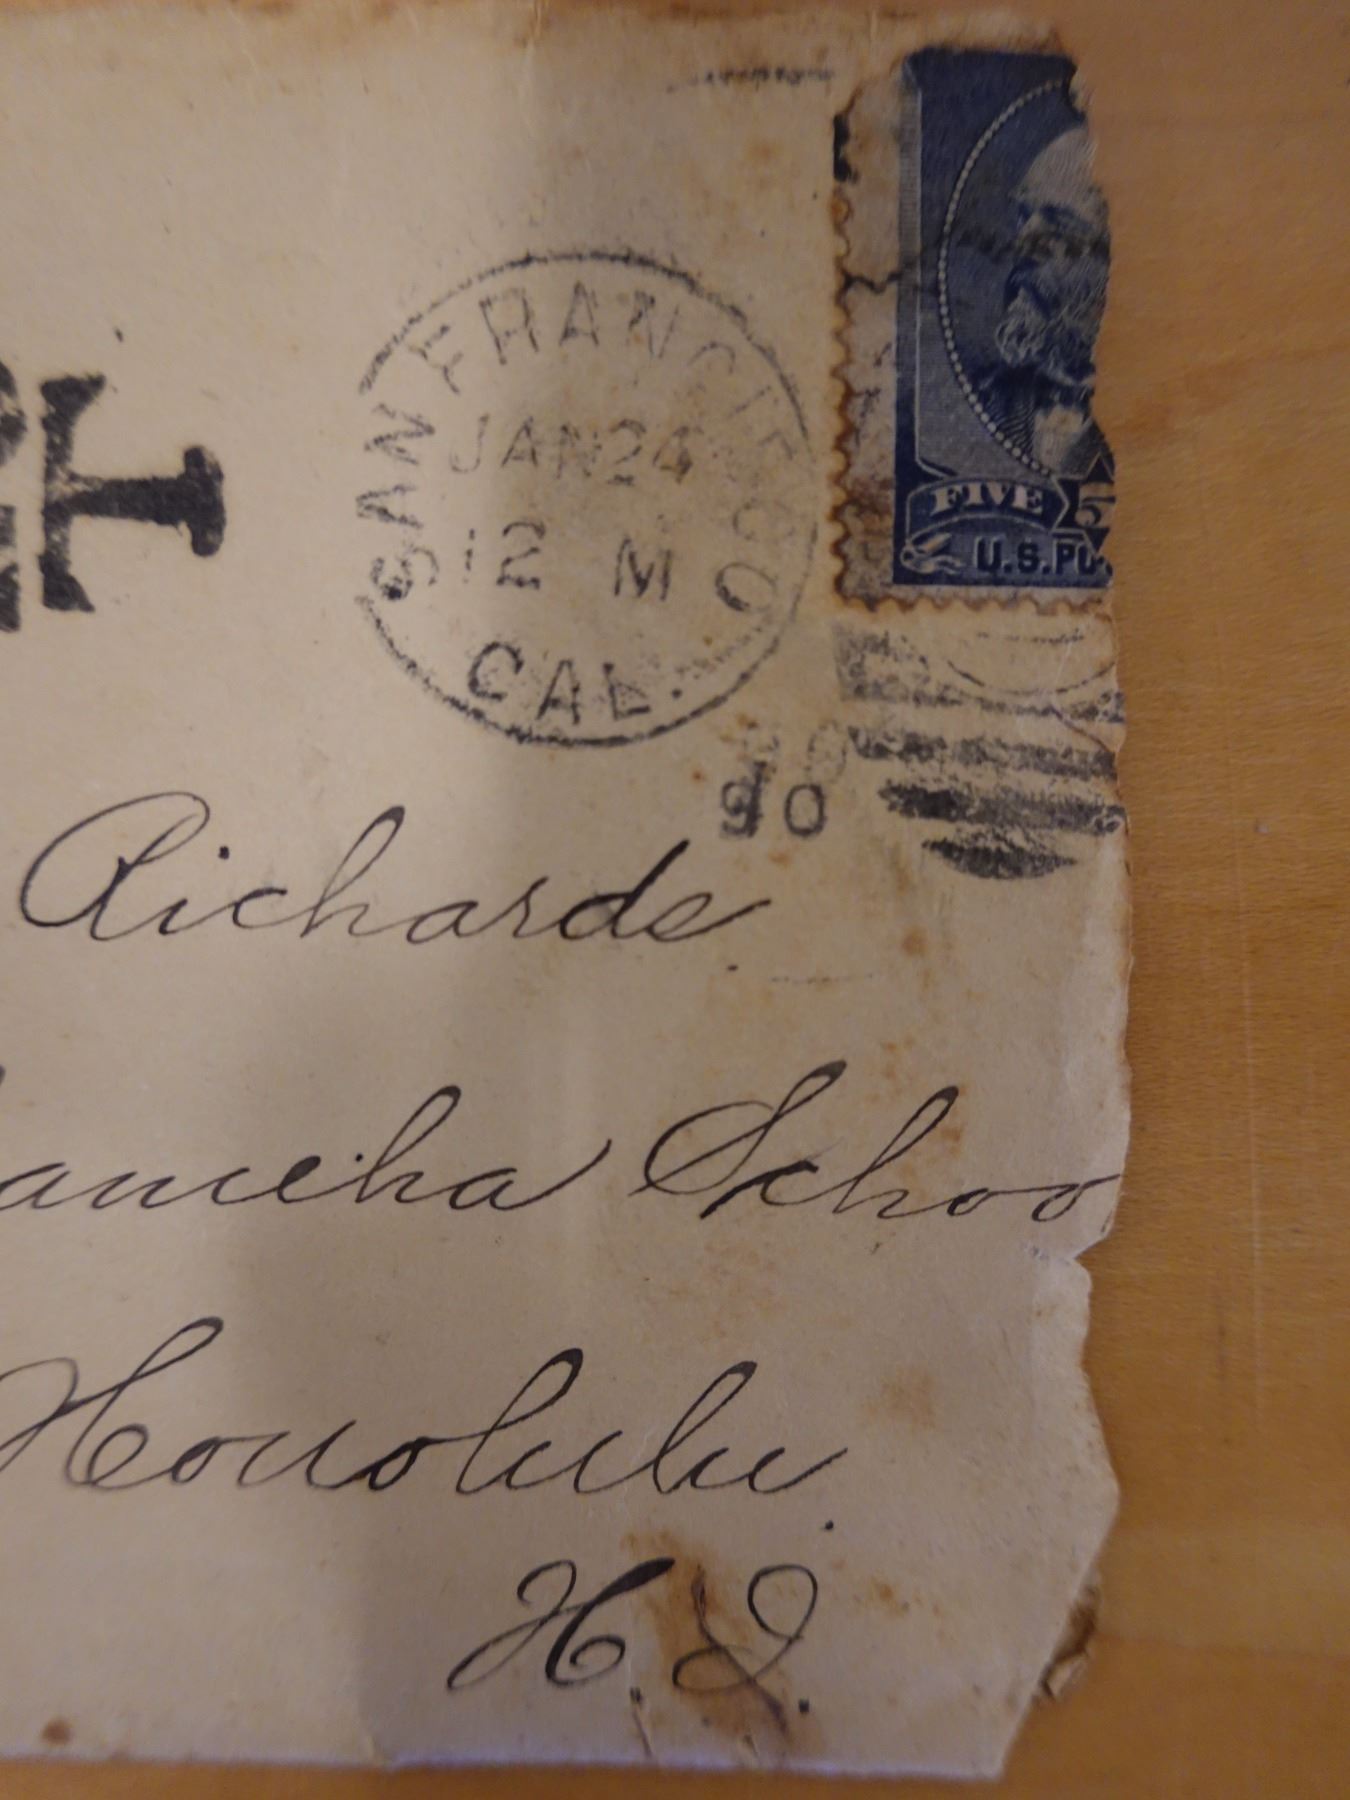 SAN FRANCISCO
JAN 24
12 M
CAL.
90
FIVE 5
U.S.PO
Richards
ameha Schoo
Honolulu.
H.I.